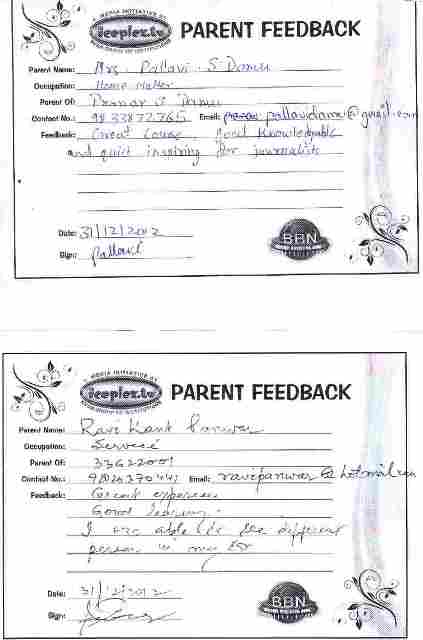 A MEDIA INITIATIVE BY
iceplex.tv
PARENT FEEDBACK
Parent Name: Mrs. Pallavi . S Damu
Occupation: Home Maker
Parent Of: Pranav S Damu
Contact No.: 9833872765 Email: pallavidamu@gmail.com
Feedback: Great Course, good knowledgable
and quiet inspiring for journalists
Date: 31/12/2012
Sign: Pallavi
BBN
A MEDIA INITIATIVE BY
iceplex.tv
PARENT FEEDBACK
Parent Name: Ravi Kant Panwar
Occupation: Service
Parent Of: 33622009
Contact No.: Email: ravipanwar@hotmail.com
Feedback: Great experience
Good learning.
I are able to see different
person in my
Date: 31/12/2012
Sign:
BBN